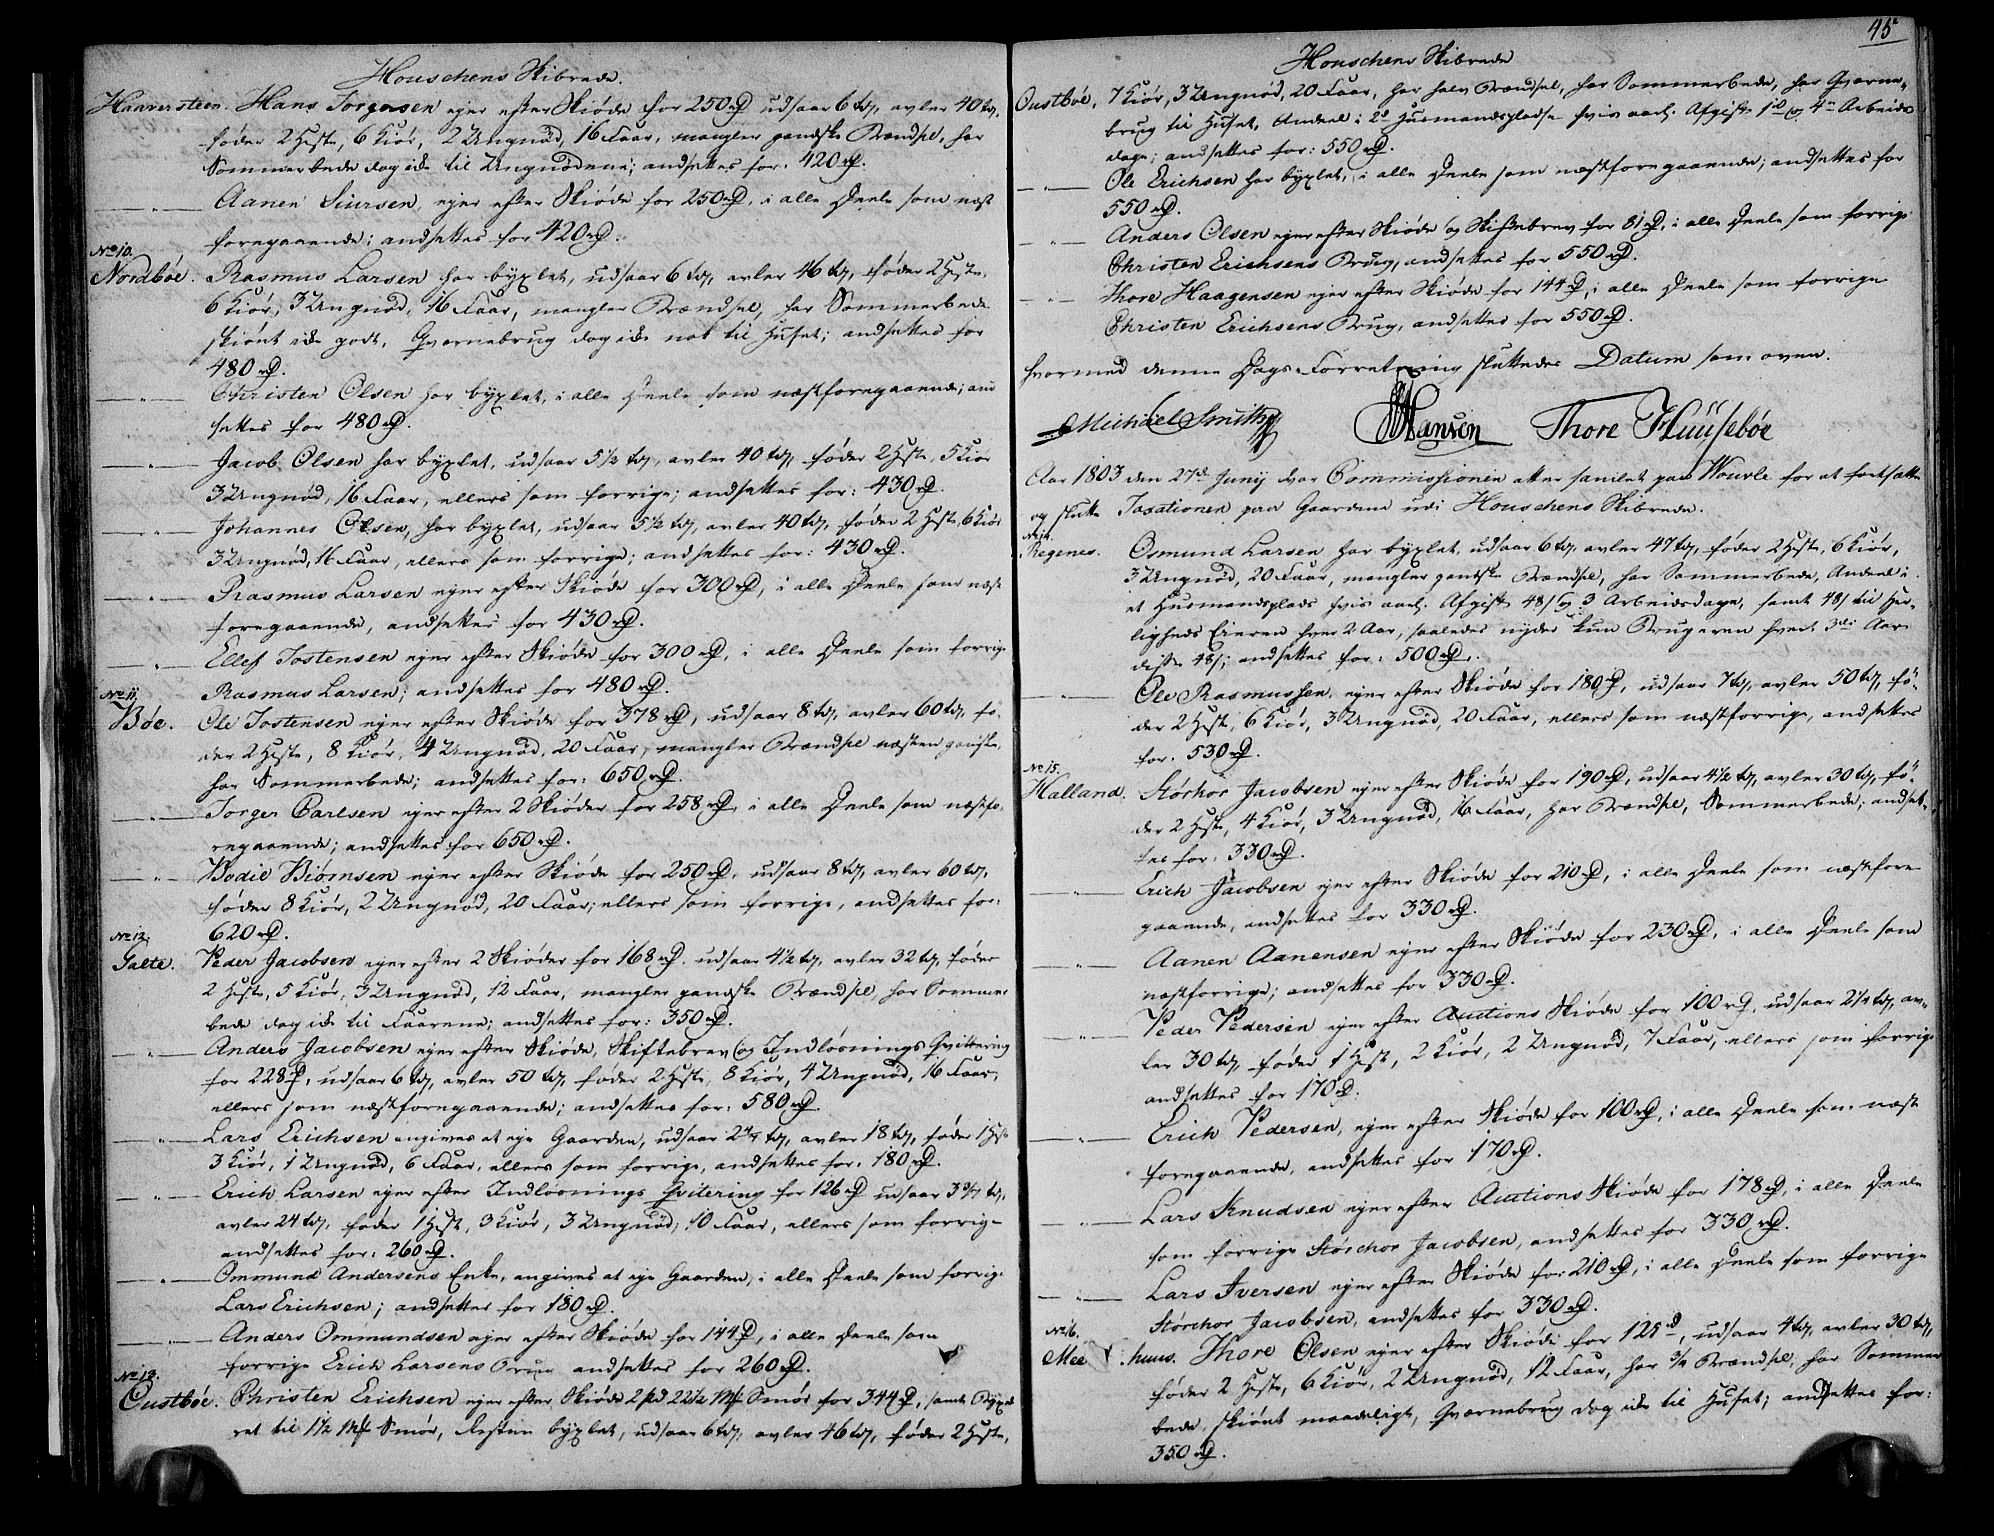 Houschens Skibrede.
Haavarsteen. Hans Torgersen ejer efter Skiøde for 250 rd udsaar 6 td, avler 40 td,
føder 2 Heste, 6 Kiør, 2 Ungnød, 16 Faar, mangler gandske Brændsel, har
Sommerbede dog ick til Ungnødene; andsettes for: 420 rd.
—„— Aanen Siursen, ejer efter Skiøde for 250 rd, i alle Deele som næst
foregaaende; andsettes for 420 rd.
No 10.
Nordbøe. Rasmus Larsen har byxlet, udsaar 6 td, avler 46 td, føder 2 Heste,
6 Kiør, 3 Ungnød, 16 Faar, mangler Brændsel, har Sommerbede
skiønt ick godt, Qvernebrug dog ick nok til Huset; andsettes for
480 rd.
—„— Christen Olsen har byxlet, i alle Deele som næstforegaaende; and
settes for 480 rd.
—„— Jacob Olsen har byxlet, udsaar 5 1/2 td, avler 40 td, føder 2 Heste, 5 Kiør
3 Ungnød, 16 Faar, ellers som forrige; andsettes for: 430 rd.
—„— Johannes Olsen, har byxlet, udsaar 5 1/2 td, avler 40 td, føder 2 Heste, 6 Kiør
3 Ungnød, 16 Faar, ellers som forrige; andsettes for: 430 rd.
—„— Rasmus Larsen ejer efter Skiøde for 300 rd, i alle Deele som næst
foregaaende, andsettes for 430 rd.
—„— Ellef Tostensen ejer efter Skiøde for 300 rd, i alle Deele som forrige
Rasmus Larsen; andsettes for 480 rd.
No 11.
Bøe. Ole Tostensen ejer efter Skiøde for 378 rd, udsaar 8 td, avler 60 td, fø-
der 2 Heste, 8 Kiør, 4 Ungnød, 20 Faar, mangler Brændsel næsten gandske,
har Sommerbede; andsettes for: 650 rd.
—„— Torger Carlsen ejer efter 2 Skiøder for 258 rd, i alle Deele som næstfo-
regaaende; andsettes for 650 rd.
—„— Bodil Biørnsen ejer efter Skiøde for 250 rd, udsaar 8 td, avler 60 td,
føder 8 Kiør, 2 Ungnød, 20 Faar; ellers som forrige, andsettes for:
620 rd.
No 12.
Galte. Peder Jacobsen ejer efter 2 Skiøder for 168 rd. udsaar 4 1/2 td, avler 32 td, føder
2 Heste, 5 Kiør, 3 Ungnød, 12 Faar, mangler gandske Brændsel, har Sommer
bede dog ick til Faarene; andsettes for: 350 rd.
—„— Anders Jacobsen ejer efter Skiøde, Skiftebrev og Indløsnings Qvittering
for 228 rd, udsaar 6 td, avler 50 td, føder 2 Heste, 8 Kiør, 4 Ungnød, 16 Faar,
ellers som næstforegaaende; andsettes for: 580 rd.
—„— Lars Erichsen angives at eje Gaarden, udsaar 2 1/4 td, avler 18 td, føder 1 Hest
3 Kiør, 1 Ungnød, 6 Faar, ellers som forrige, andsettes for: 180 rd.
—„— Erich Larsen ejer efter Indløsnings Qvitering for 126 rd udsaar 3 td,
avler 24 td, føder 1 Hest, 3 Kiør, 3 Ungnød, 10 Faar, ellers som forrige
andsettes for: 260 rd.
—„— Ommund Andersens Enke, angives at eje Gaarden, i alle Deele som forrige
Lars Erichsen; andsettes for 180 rd.
—„— Anders Ommundsen ejer efter Skiøde for 144 rd, i alle Deele som
forrige Erich Larsens Brug andsettes for 260 rd.
No 13.
Oustbøe. Christen Erichsen ejer efter Skiøde 2 pd 22 1/2 Mk Smør for 344 rd, samt Byxel
ret til 1 1/2 Mk Smør, Resten byxlet, udsaar 6 td, avler 46 td, føder 2 Heste,
45
Houschens Skibrede
Oustbøe, 7 Kiør, 3 Ungnød, 20 Faar, har halv Brændsel, har Sommerbede, har Qverne-
brug til Huset, Andeel i Husmandsplads hvis aarl. Afgift 1 rd og 4 Arbeids
dage; andsettes for: 550 rd.
—„— Ole Erichsen har byxlet, i alle Deele som næstforegaaende; andsettes for
550 rd.
—„— Anders Olsen ejer efter Skiøde og Skiftebrev for 81 rd, i alle Deele som forrige
Christen Erichsens Brug, andsettes for 550 rd.
—„— Thore Haagensen ejer efter Skiøde for 144 rd, i alle Deele som forrige
Christen Erichsens Brug, andsettes for 550 rd.
hvormed denne Dags Forretning sluttedes Datum som oven.
Michael Smith Hansen Thore Huusebøe
Aar 1803 den 27de Junij var Commissionen atter samlet paa Wouvle for at fortsætte
og slutte Taxationen paa Gaardene udi Houschens Skibrede.
No 14.
Regenes. Osmund Larsen har byxlet, udsaar 6 td, avler 47 td, føder 2 Heste, 6 Kiør,
3 Ungnød, 20 Faar, mangler gandske Brændsel, har Sommerbede, Andeel i
et Husmandsplads hvis aarl. Afgift 48 s og 3 Arbeidsdage, samt 48 s til Her-
ligheds Eieren hver 2 Aar, saaledes nyder kun Brugeren hvert 3die Aar
disse 48 s; andsettes for: 500 rd.
—„— Ole Rasmussen, ejer efter Skiøde for 180 rd, udsaar 7 td, avler 50 td, fø-
der 2 Heste, 6 Kiør, 3 Ungnød, 20 Faar, ellers som næstforrige, andsettes
for: 530 rd.
No 15.
Halland. Størkor Jacobsen ejer efter Skiøde for 190 rd, udsaar 4 1/2 td, avler 30 td, fø-
der 2 Heste, 4 Kiør, 3 Ungnød, 16 Faar, har Brændsel, Sommerbede; andset-
tes for: 330 rd.
—„— Erich Jacobsen ejer efter Skiøde for 210 rd, i alle Deele som næstfore
gaaende, andsettes for 330 rd.
—„— Aanen Aanensen ejer efter Skiøde for 230 rd, i alle Deele som
næstforrige; andsettes for 330 rd.
—„— Peder Pedersen ejer efter Auctions Skiøde for 100 rd, udsaar 2 1/4 td, av-
ler 30 td, føder 1 Hest, 2 Kiør, 2 Ungnød, 7 Faar, ellers som forrige
andsettes for 170 rd.
—„— Erich Pedersen, ejer efter Skiøde for 100 rd, i alle Deele som næst
foregaaende, andsettes for 170 rd.
—„— Lars Knudsen ejer efter Auctions Skiøde for 178 rd, i alle Deele
som forrige Størchor Jacobsen, andsettes for 330 rd.
—„— Lars Iversen ejer efter Skiøde for 210 rd, i alle Deele som forrige
Størchor Jacobsen, andsettes for 330 rd.
No 16.
Mee huus. Thore Olsen ejer efter Skiøde for 125 rd, udsaar 4 td, avler 30 td,
føder 2 Heste, 6 Kiør, 2 Ungnød, 12 Faar, har 3/4 Brændsel, har Sommer
bede, skiønt maadeligt, Qvernebrug dog ick til Huset; andsettes for:
350 rd.